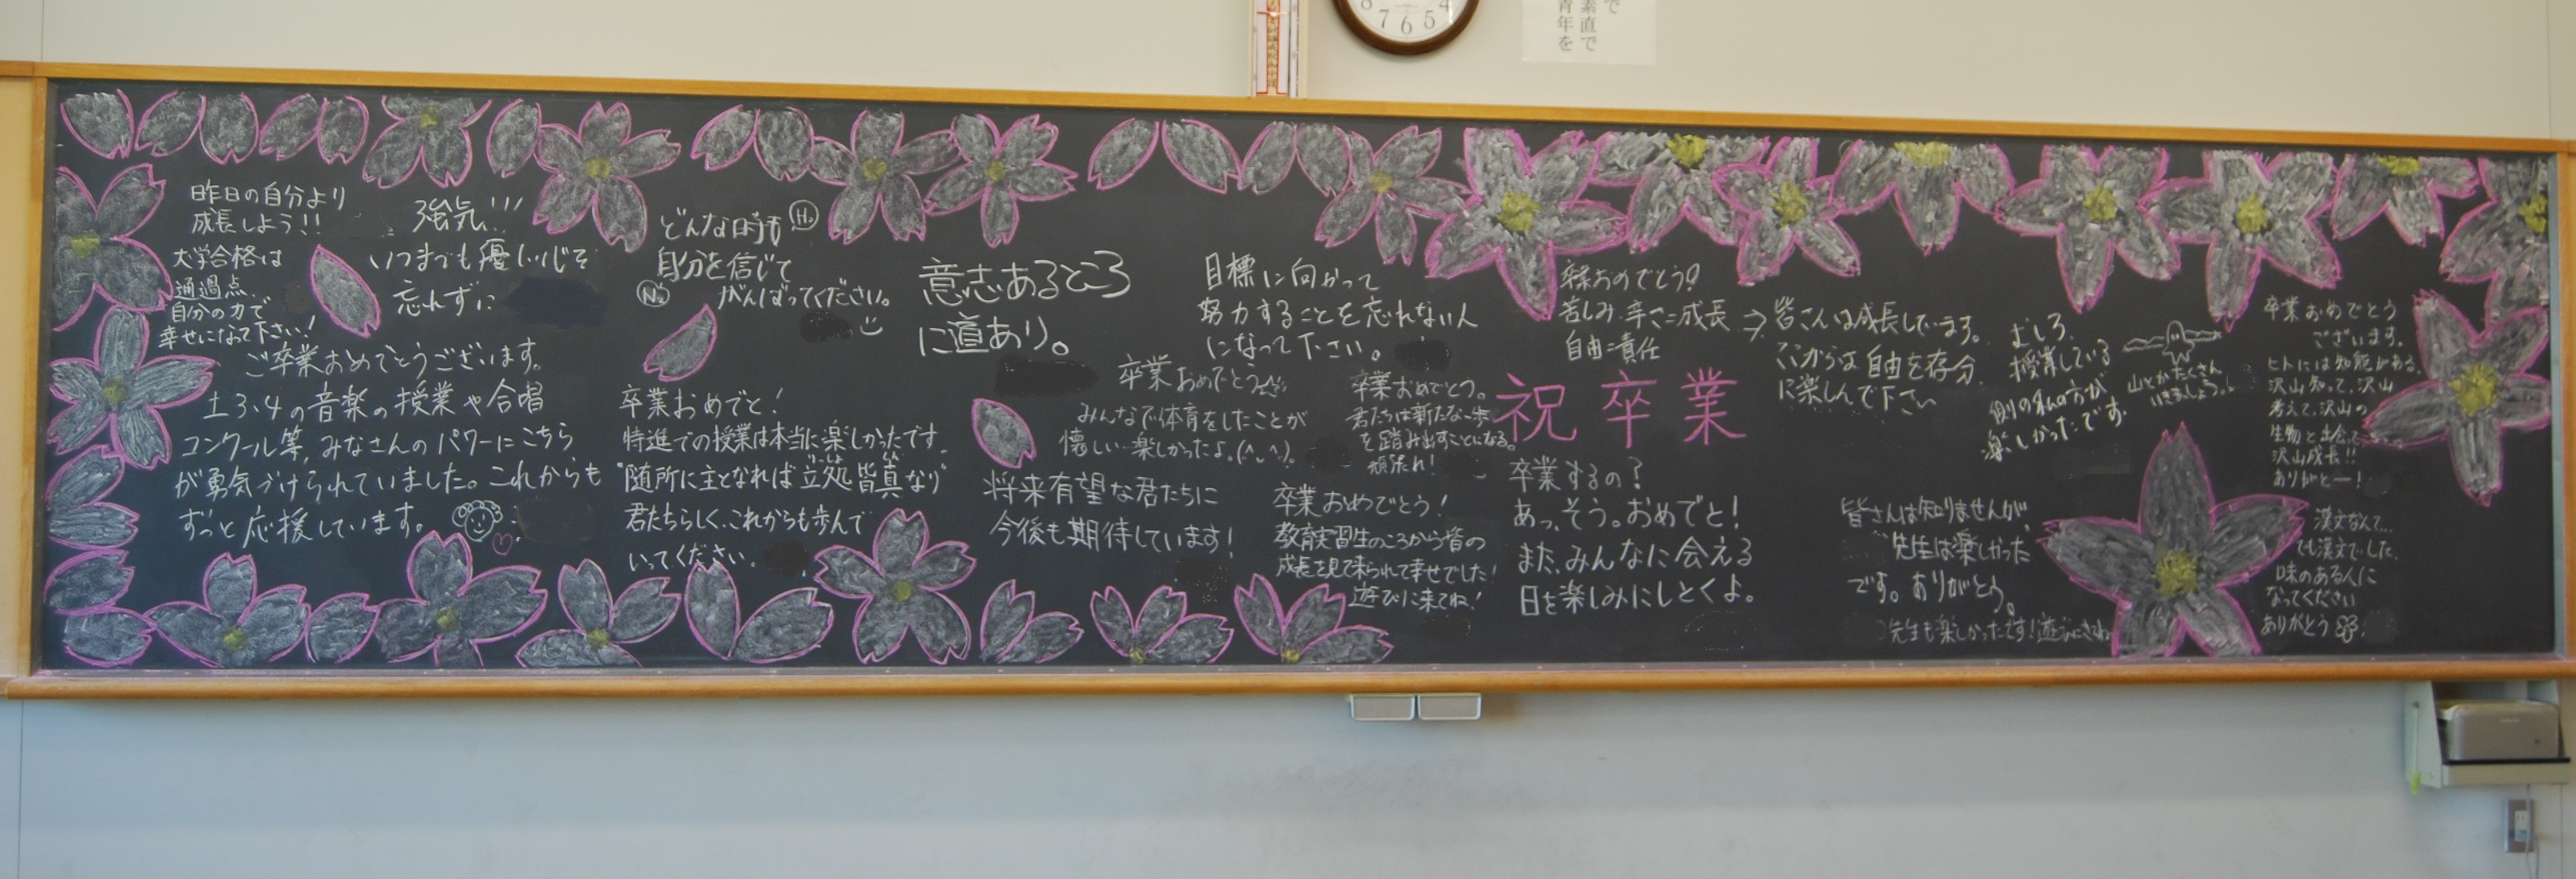 8
7
6
5
4
で
素直で
青年を
昨日の自分より
成長しよう!!
大学合格は
通過点
自分の力で
幸せになって下さい!
強気!!!
いつまでも優しい心を
忘れずに
どんな時も
自分を信じて
がんばってください。
H₂
N₂
意志あるところ
に道あり。
目標に向かって
努力することを忘れない人
になって下さい。
卒業おめでとう!
苦しみ・辛さ=成長
自由=責任
→皆さんは成長しています。
ここからは自由を存分
に楽しんで下さい
むしろ、
授業している
側の私の方が
楽しかったです。
山とかたくさん
いきましょう。
卒業おめでとう
ございます。
ヒトには知能がある。
沢山知って、沢山
考えて、沢山の
生物と出会って
沢山成長!!
ありがとー!
ご卒業おめでとうございます。
土3、4の音楽の授業や合唱
コンクール等、みなさんのパワーにこちら
が勇気づけられていました。これからも
ずっと応援しています。
卒業おめでと!
特進での授業は本当に楽しかったです。
"随所に主となれば立処皆真なり"
君たちらしく、これからも歩んで
いってください。
卒業おめでとう
みんなで体育をしたことが
懐しい…楽しかったよ。(^_^)
将来有望な君たちに
今後も期待しています!
卒業おめでとう。
君たちは新たな一歩
を踏み出すことになる。
頑張れ!
卒業おめでとう!
教育実習生のころから皆の
成長を見て来られて幸せでした!
遊びに来てね!
祝卒業
卒業するの?
あっ、そう。おめでと!
また、みんなに会える
日を楽しみにしとくよ。
皆さんは知りませんが、
先生は楽しかった
です。ありがとう。
先生も楽しかったです!遊びにきてね
漢文なんて…
でも漢文でした。
味のある人に
なってください
ありがとう